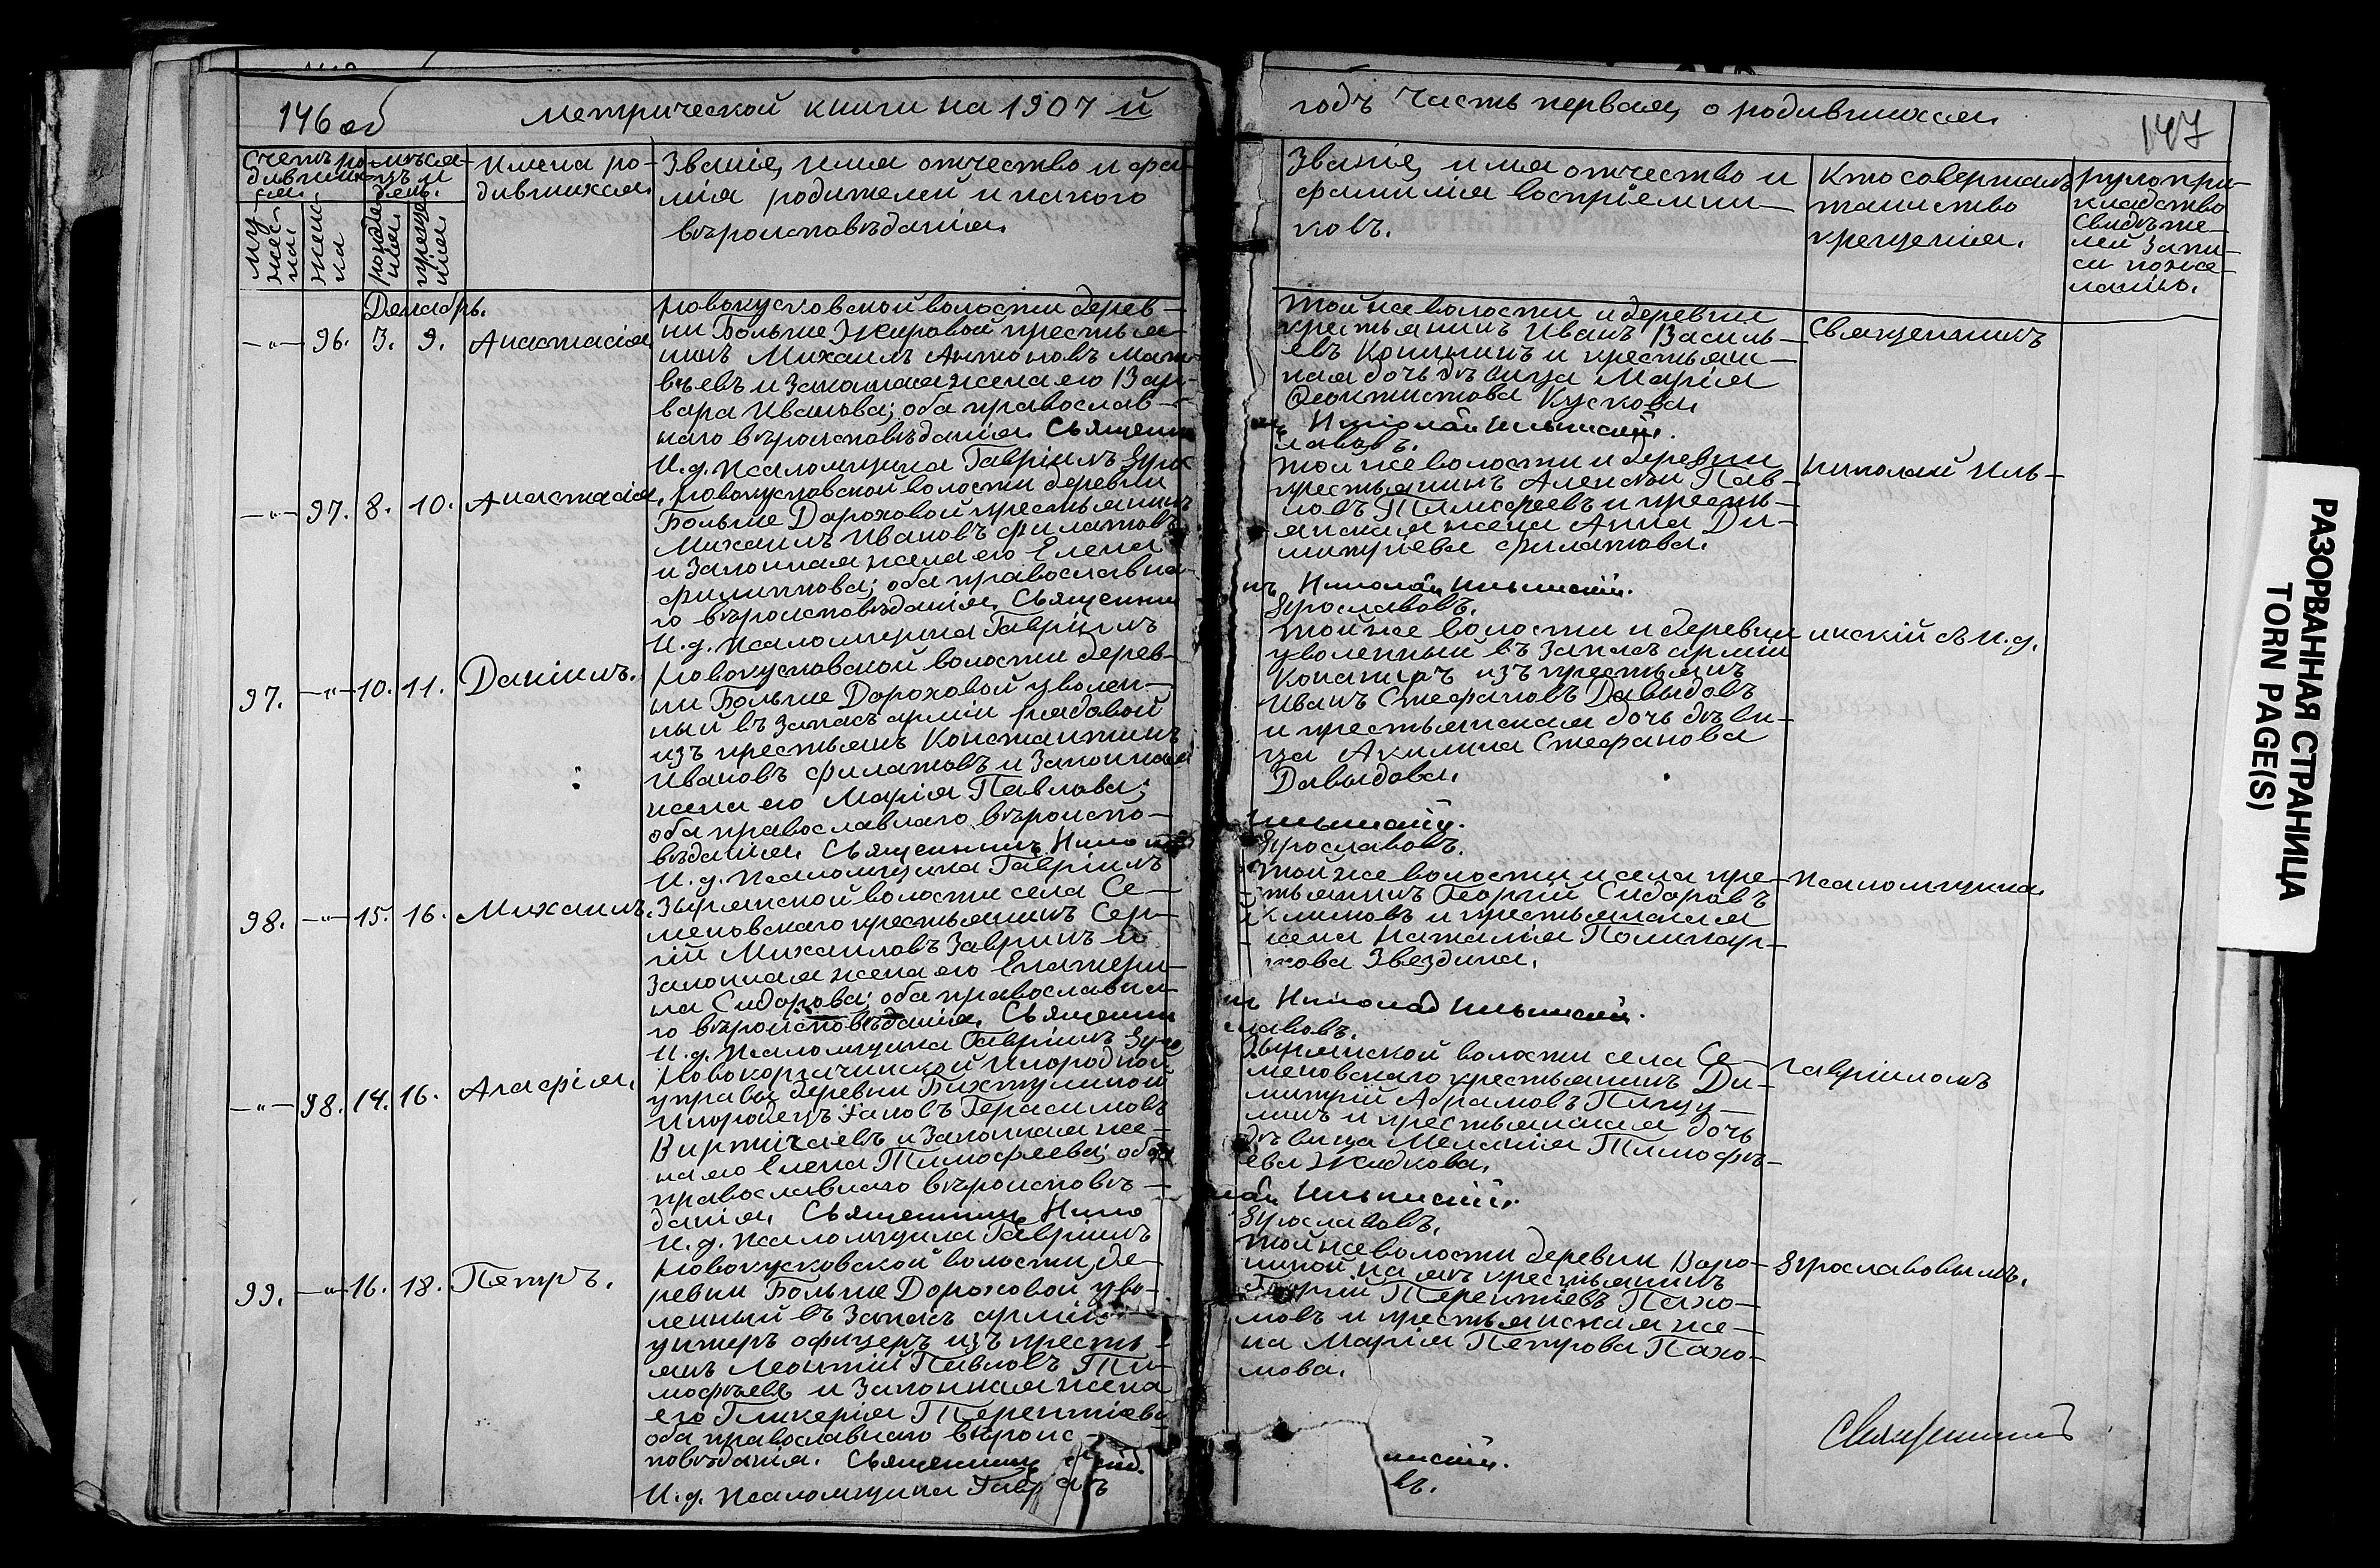 146 об
метрической книги на 1907 й
годъ часть первая, о родившихся
147
Счетъ ро-
дивших-
ся.
муж-
жес-
ка.
женс-
ка
мѣся-
цъ и
день.
рожде-
нія
креще-
нія
Имена ро-
дившихся.
Званіе, имя отчество и фа-
милія родителей и какого
вѣроисповѣданія.
Званіе, имя отчество и
фамилія воспріемни-
ковъ.
Кто совершалъ
таинство
крещенія.
рукопри-
кладство
свидѣте-
лей запи-
си по же-
ланію.
Декабрь.
—"— 96. 3. 9. Анастасія
Новокусковской волости дерев-
ни Больше Жировой крестья-
нинъ Михаилъ Антоновъ Мат-
вѣевъ и законная жена его Вар-
вара Иванова; оба православ-
наго вѣроисповѣданія. Священни
И.д. псаломщика Гавріилъ Яро
Той же волости и деревни
крестьянинъ Иванъ Василь-
евъ Копынинъ и крестьян-
ская дочь дѣвица Марія
Феоктистова Кускова.
къ Николай Ильинскій.
славовъ.
Священникъ
—"— 97. 8. 10. Анастасія.
Новокусковской волости деревни
Больше Дороховой крестьянинъ
Михаилъ Ивановъ Филатовъ
и законная жена его Елена
Филиппова; оба православна-
го вѣроисповѣданія. Священни
И.д. псаломщика Гавріилъ
Той же волости и деревни
крестьянинъ Алексѣй Пав-
ловъ Тимофеевъ и кресть-
янская жена Анна Ди-
митріева Филатова.
къ Николай Ильинскій.
Ярославовъ.
Николай Иль-
97. —"— 10. 11. Даніилъ.
Новокусковской волости дерев-
ни Больше Дороховой уволен-
ный въ запасъ арміи рядовой
изъ крестьянъ Константинъ
Ивановъ Филатовъ и законная
жена его Марія Павлова;
оба православнаго вѣроиспо-
вѣданія. Священникъ Николай
И.д. псаломщика Гавріилъ
Той же волости и деревни
уволенный въ запасъ арміи
изъ крестьянъ
Иванъ Стефановъ Давыдовъ
и крестьянская дочь дѣви-
ца Акилина Стефанова
Давыдова.
Ильинскій.
Ярославовъ.
инскій съ И.д.
98. —"— 15. 16. Михаилъ.
Зырянской волости села Се-
меновскаго крестьянинъ Сер-
гій Михаиловъ Завринъ и
законная жена его Екатери-
на Сидорова; оба православна-
го вѣроисповѣданія. Священни
И.д. псаломщика Гавріилъ Яро
Той же волости и села кре-
стьянинъ Георгій Сидоровъ
Климовъ и крестьянская
жена Наталія Поликар-
пова Звездина.
къ Николай Ильинскій.
славовъ.
псаломщика
—"— 98. 14. 16. Агафія.
инородной
управы деревни Тихтулиной
инородецъ Іаковъ Герасимовъ
и законная же-
на его Елена Тимофеева; оба
православнаго вѣроисповѣ-
данія. Священникъ Нико
И.д. псаломщика Гавріилъ
Зырянской волости села Се-
меновскаго крестьянинъ Ди-
митрій Абрамовъ Пичу-
гинъ и крестьянская дочь
дѣвица Меланія Тимофѣ-
ева Жидкова.
лай Ильинскій.
Ярославовъ.
Гавріиломъ
99. —"— 16. 18. Петръ.
Новокусковской волости, де-
ревни Больше Дороховой уво-
ленный въ запасъ арміи
унтеръ офицеръ изъ кресть-
янъ Леонтій Павловъ Ти-
мофѣевъ и законная жена
его Гликерія Терентіева
оба православнаго вѣроис-
повѣданія. Священникъ
И.д. псаломщика Гавр
Той же волости деревни Воро-
ниной на ямъ крестьянинъ
Георгій Терентіевъ Пахо-
мовъ и крестьянская же-
на Марія Петрова Пахо-
мова.
инскій.
въ.
Ярославовымъ.
Священникъ
РАЗОРВАННАЯ СТРАНИЦА
TORN PAGE(S)